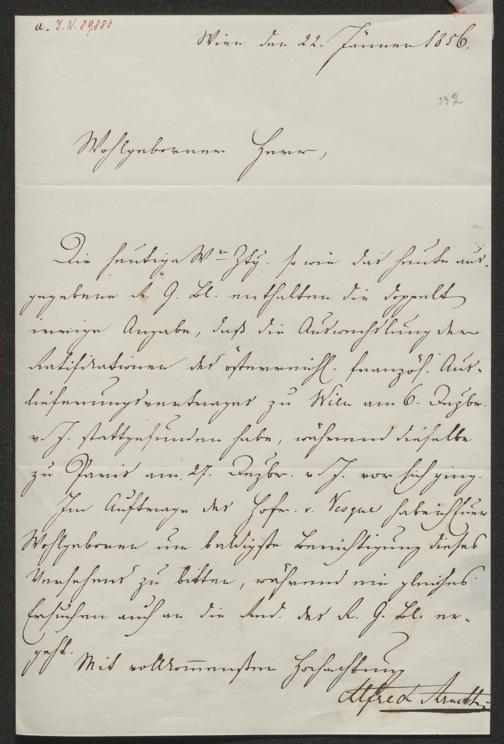 a. I.N. 89886
Wien den 22. Jänner 1856.
392
Wohlgeborner Herr,
Die heutige Wr Ztg. so wie das heute aus-
gegebene R. G. Bl. enthalten die doppelt
irrige Angabe, daß die Auswechslung der
Ratifikationen des österreichl. französ. Aus-
lieferungsvertrages zu Wien am 6. Dezbr.
v. J. stattgefunden habe, während dieselbe
zu Paris am 27. Dezbr. v. J. vor sich ging.
Im Auftrage des Hofr. v. Vesque habe ich Euer
Wohlgeboren um baldigste Berichtigung dieses
Versehens zu bitten, während ein gleiches
Ersuchen auch an die Red. des R. G. Bl. er-
geht.
Mit vollkommenster Hochachtung
Alfred Arneth